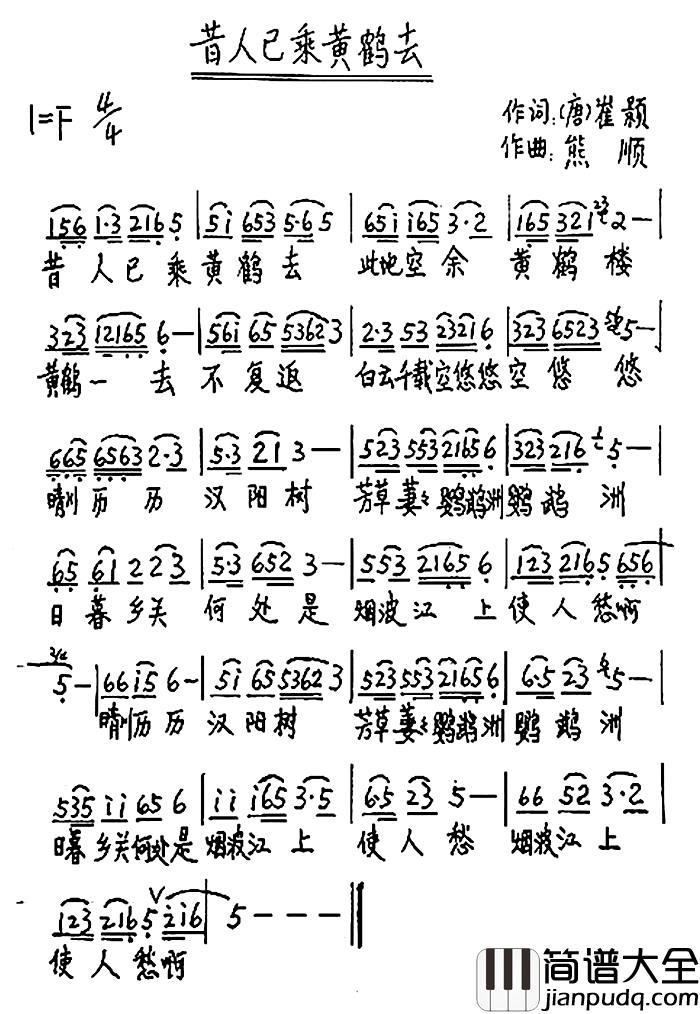 昔人已乘黄鹤去
1=F 4/4
作词:(唐)崔颢
作曲:熊顺
156 1·3 2165 | 5i 653 5·65 | 65i i65 3·2 | 165 321 2— |
昔人已乘黄鹤去 此地空余黄鹤楼
323 12165 6— | 56i 65 53623 | 2·3 53 23216 | 323 6523 5— |
黄鹤一去不复返 白云千载空悠悠空悠悠
665 6563 2·3 | 5·3 21 3—— | 523 553 21656 | 323 216 5— |
晴川历历汉阳树 芳草萋萋鹦鹉洲鹦鹉洲
65 61 223 | 5·3 652 3— | 553 2165 6 | 123 2165 656 |
日暮乡关何处是 烟波江上使人愁啊
2/4
5— | 66 i5 6— | 5i 65 53623 | 523 553 21656 | 6·5 23 5— |
晴川历历汉阳树 芳草萋萋鹦鹉洲鹦鹉洲
535 ii 65 6 | ii i65 3·5 | 6·5 23 5— | 66 52 3·2 |
日暮乡关何处是烟波江上 使人愁 烟波江上
123 216 5 V 2i6 | 5 — — — ‖
使人愁啊
简谱大全
jianpudq.com